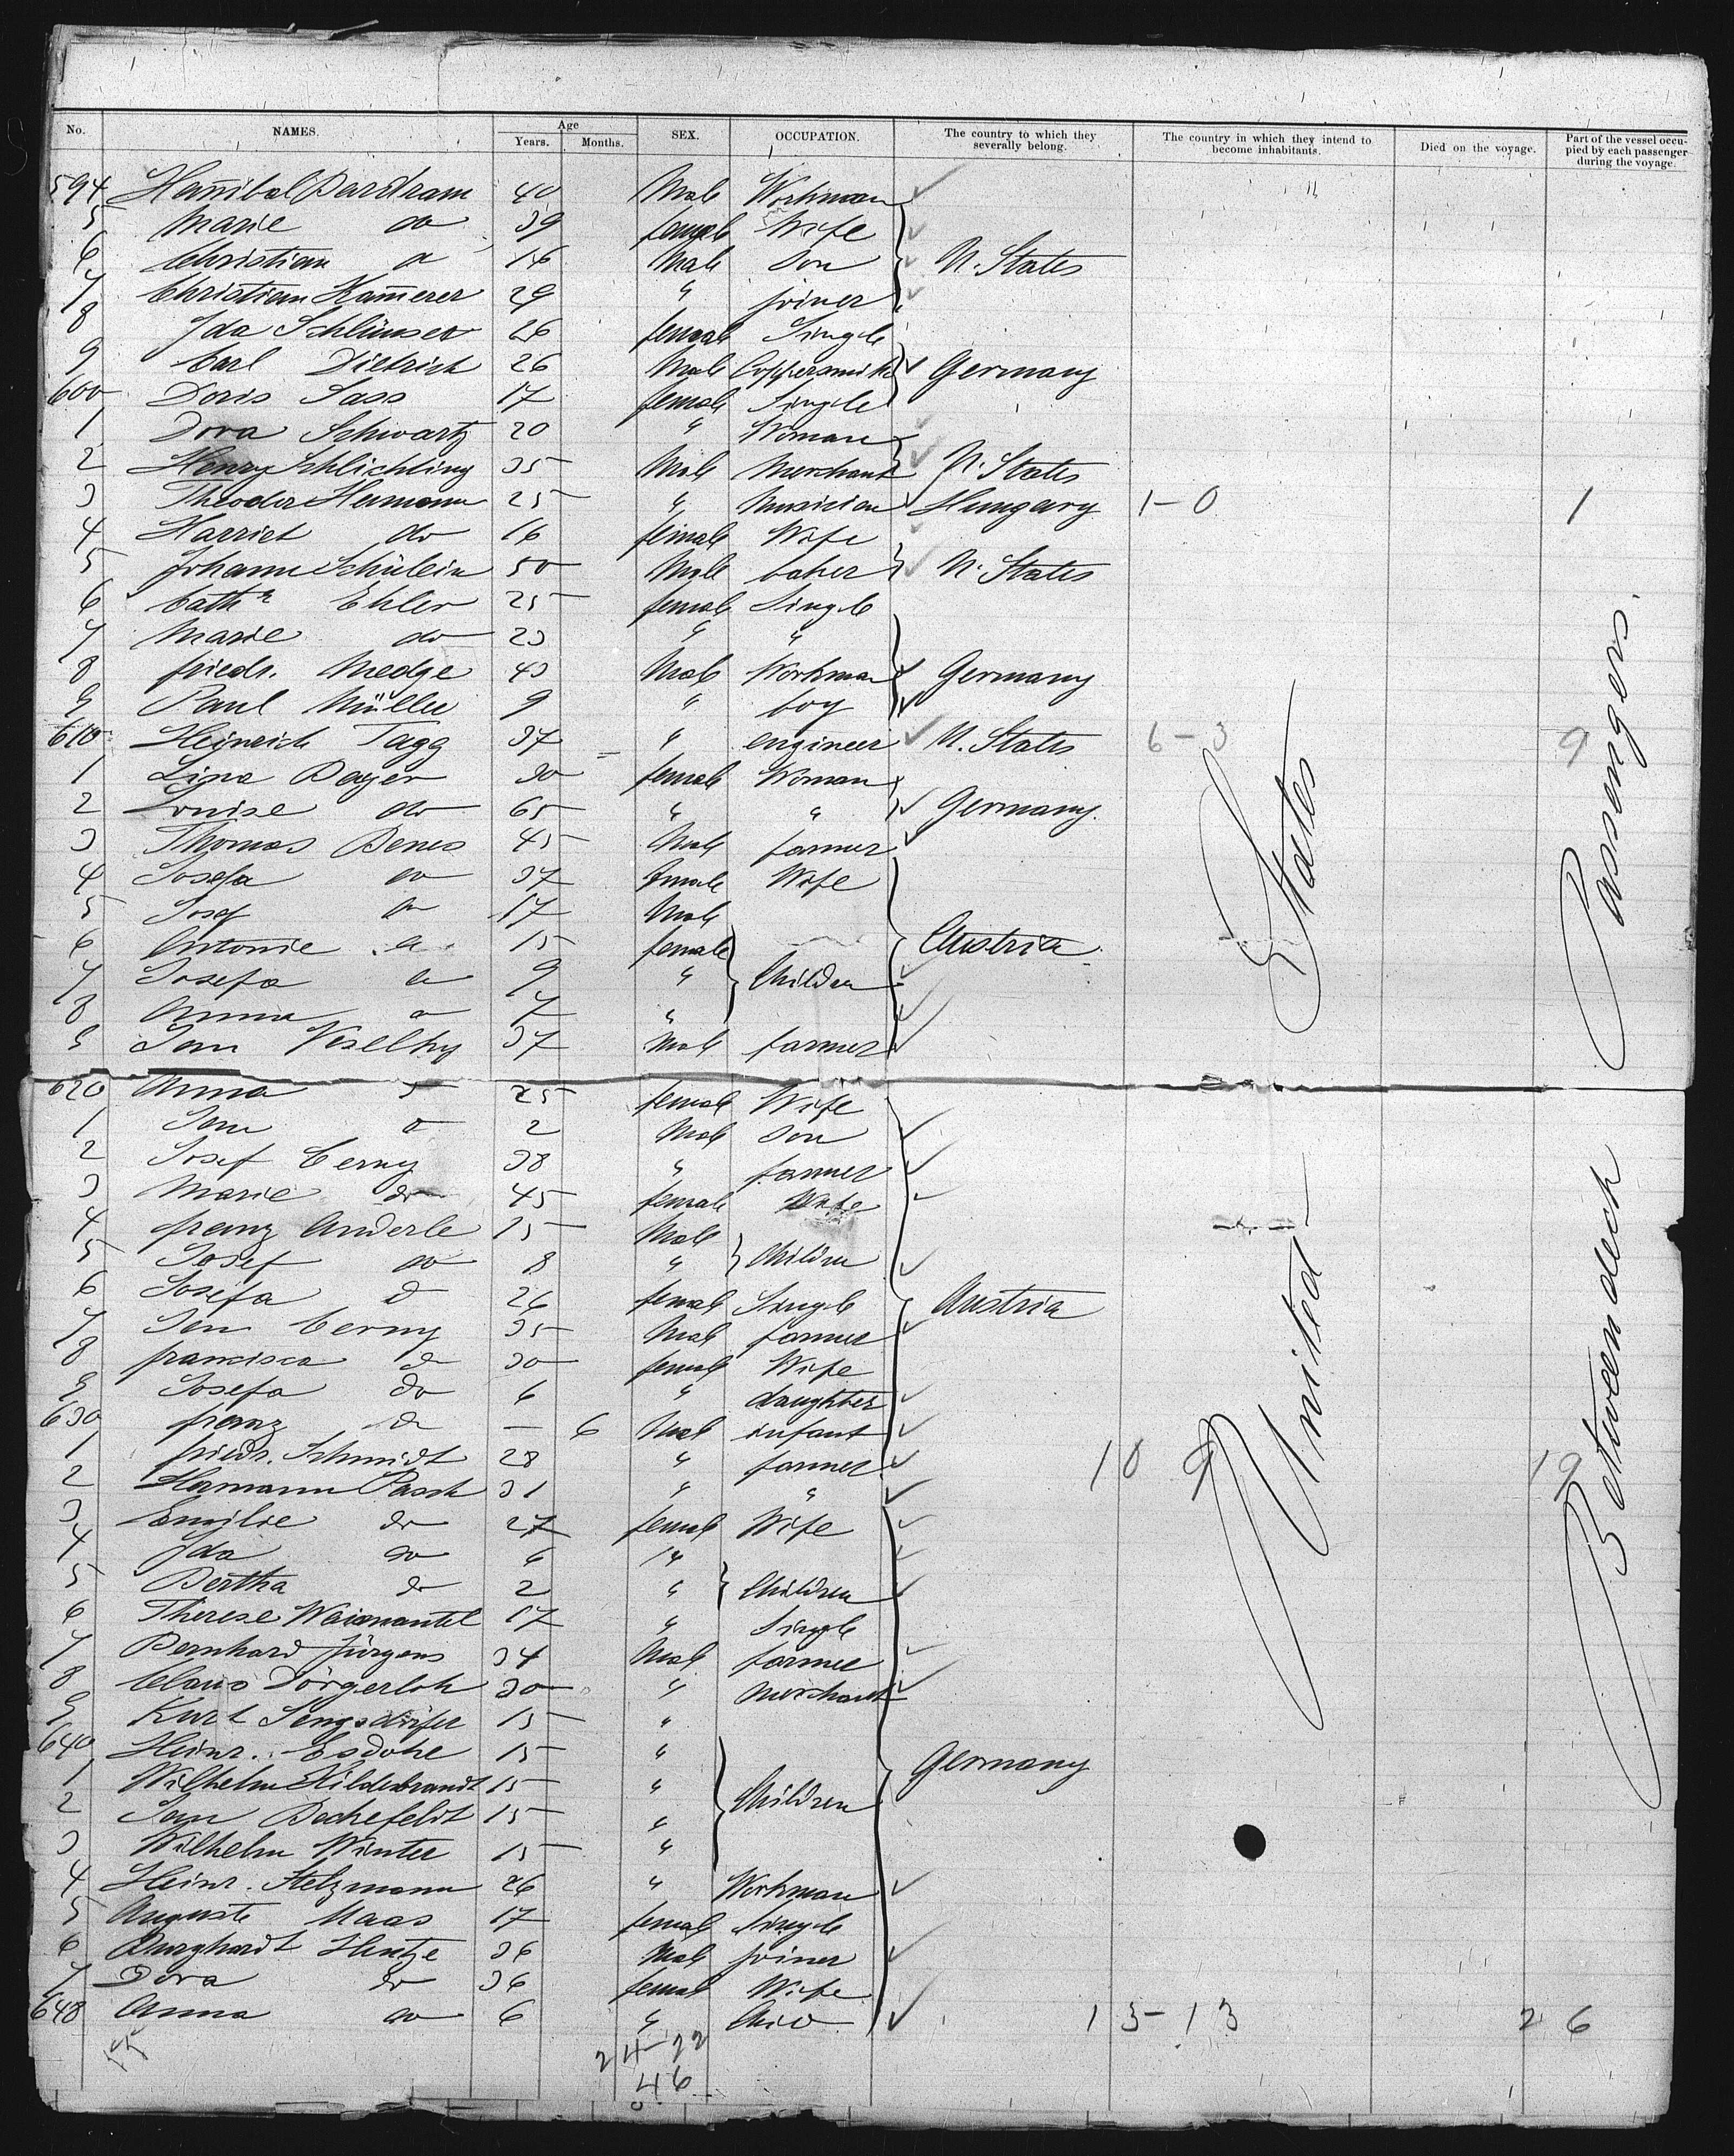 No. NAMES. Age Years. Months. SEX. OCCUPATION. The country to which they severally belong. The country in which they intend to become inhabitants. Died on the voyage. Part of the vessel occupied by each passenger during the voyage.
594 Hannibal 40 Male Workman
5 Marie do 39 female Wife
6 Christian do 16 Male Son U. States
7 Christian Kam̄erer 29 " joiner
8 Ida 26 female Single
9 Carl Dietrich 26 Male Coppersmith Germany
600 Doris Sass 17 female Single
1 Dora Schwartz 20 " Woman
2 Henry Schlichting 35 Male Merchant U. States
3 Theodor Hermann 25 " Musician Hungary 1-0 1
4 Harriet do 16 female Wife
5 Johann Schülein 50 Male baker U. States
6 Cath. Ehler 25 female Single
7 Marie do 23 " "
8 friedr. Medge 43 Male Workman Germany
9 Paul Müller 9 " boy
610 Heinrich Tagg 37 " engineer U. States 6-3 9
1 Lina Bayer 30 female Woman
2 Louise do 65 " " Germany.
3 Thomas Benes 45 Male farmer
4 Josefa do 37 female Wife
5 Josef do 17 Male
6 Antonie do 15 female Austria
7 Josefa do 9 " Children
8 Anna do 7 "
9 Jan Veselhy 37 Male farmer
620 Anna do 25 female Wife
1 Jan do 2 Male Son
2 Josef Cerny 38 " farmer
3 Marie do 45 female Wife
4 franz Anderle 15 Male
5 Josef do 8 " Children
6 Josefa do 26 female Single Austria
7 Jan Cerny 35 Male farmer
8 francisca do 30 female Wife
9 Josefa do 6 " daughter
630 franz do — 6 Male infant
1 friedr. Schmidt 28 " farmer 10 9 19
2 Hermann Pasch 31 " "
3 Emilie do 27 female Wife
4 Ida do 6 "
5 Bertha do 2 " Children
6 Therese Waismantel 17 " Single
7 Bernhard Jürgens 34 Male farmer
8 Claus Dörgerloh 30 " Merchant
9 Kurt Sengsdörfer 15 "
640 Heinr. Esdohe 15 " Germany
1 Wilhelm Hildebrandt 15 "
2 Jan Bechefeldt 15 " Children
3 Wilhelm Winter 15 "
4 Heinr. Stelzmann 26 " Workman
5 Auguste Maas 17 female Single
6 Burghardt Hentze 36 Male joiner
7 Dora do 36 female Wife
648 Anna do 6 " Child 13-13 26
24-22
46
United States
Between deck Passengers.